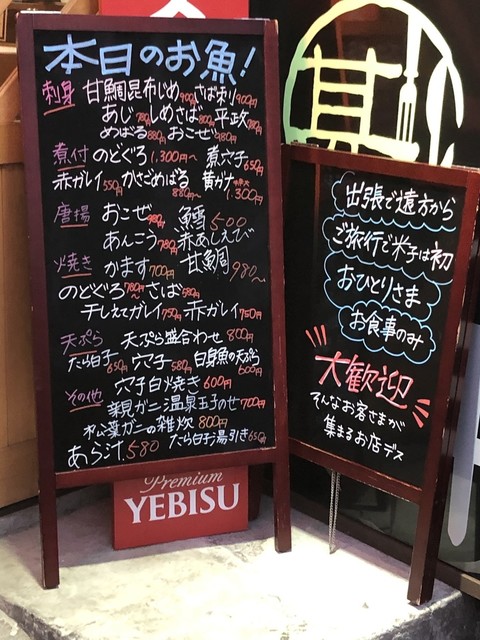 本日のお魚!
刺身 甘鯛昆布じめ900円 さば刺900円
あじ780円 しめさば800円 平政780円
めばる880円 おこぜ980円
煮付 のどぐろ1,300円〜 煮穴子650円
赤ガレイ550円 かさごめばる880円〜 黄ガナ 1,300円
唐揚 おこぜ980円 鱈500
あんこう780円 赤あしえび
焼き かます700円 甘鯛980〜
のどぐろ780円〜 さば580円
干しえてガレイ750円 赤ガレイ750円
天ぷら 天ぷら盛合わせ800円
たら白子650円 穴子580円 白身魚の天ぷら600円
その他 穴子白焼き600円
親ガニ温泉玉子のせ700円
松葉ガニの雑炊800円
あら汁580 たら白子湯引き650円
Premium
YEBISU
出張で遠方から
ご旅行で米子は初
おひとりさま
お食事のみ
大歓迎
そんなお客さまが
集まるお店デス